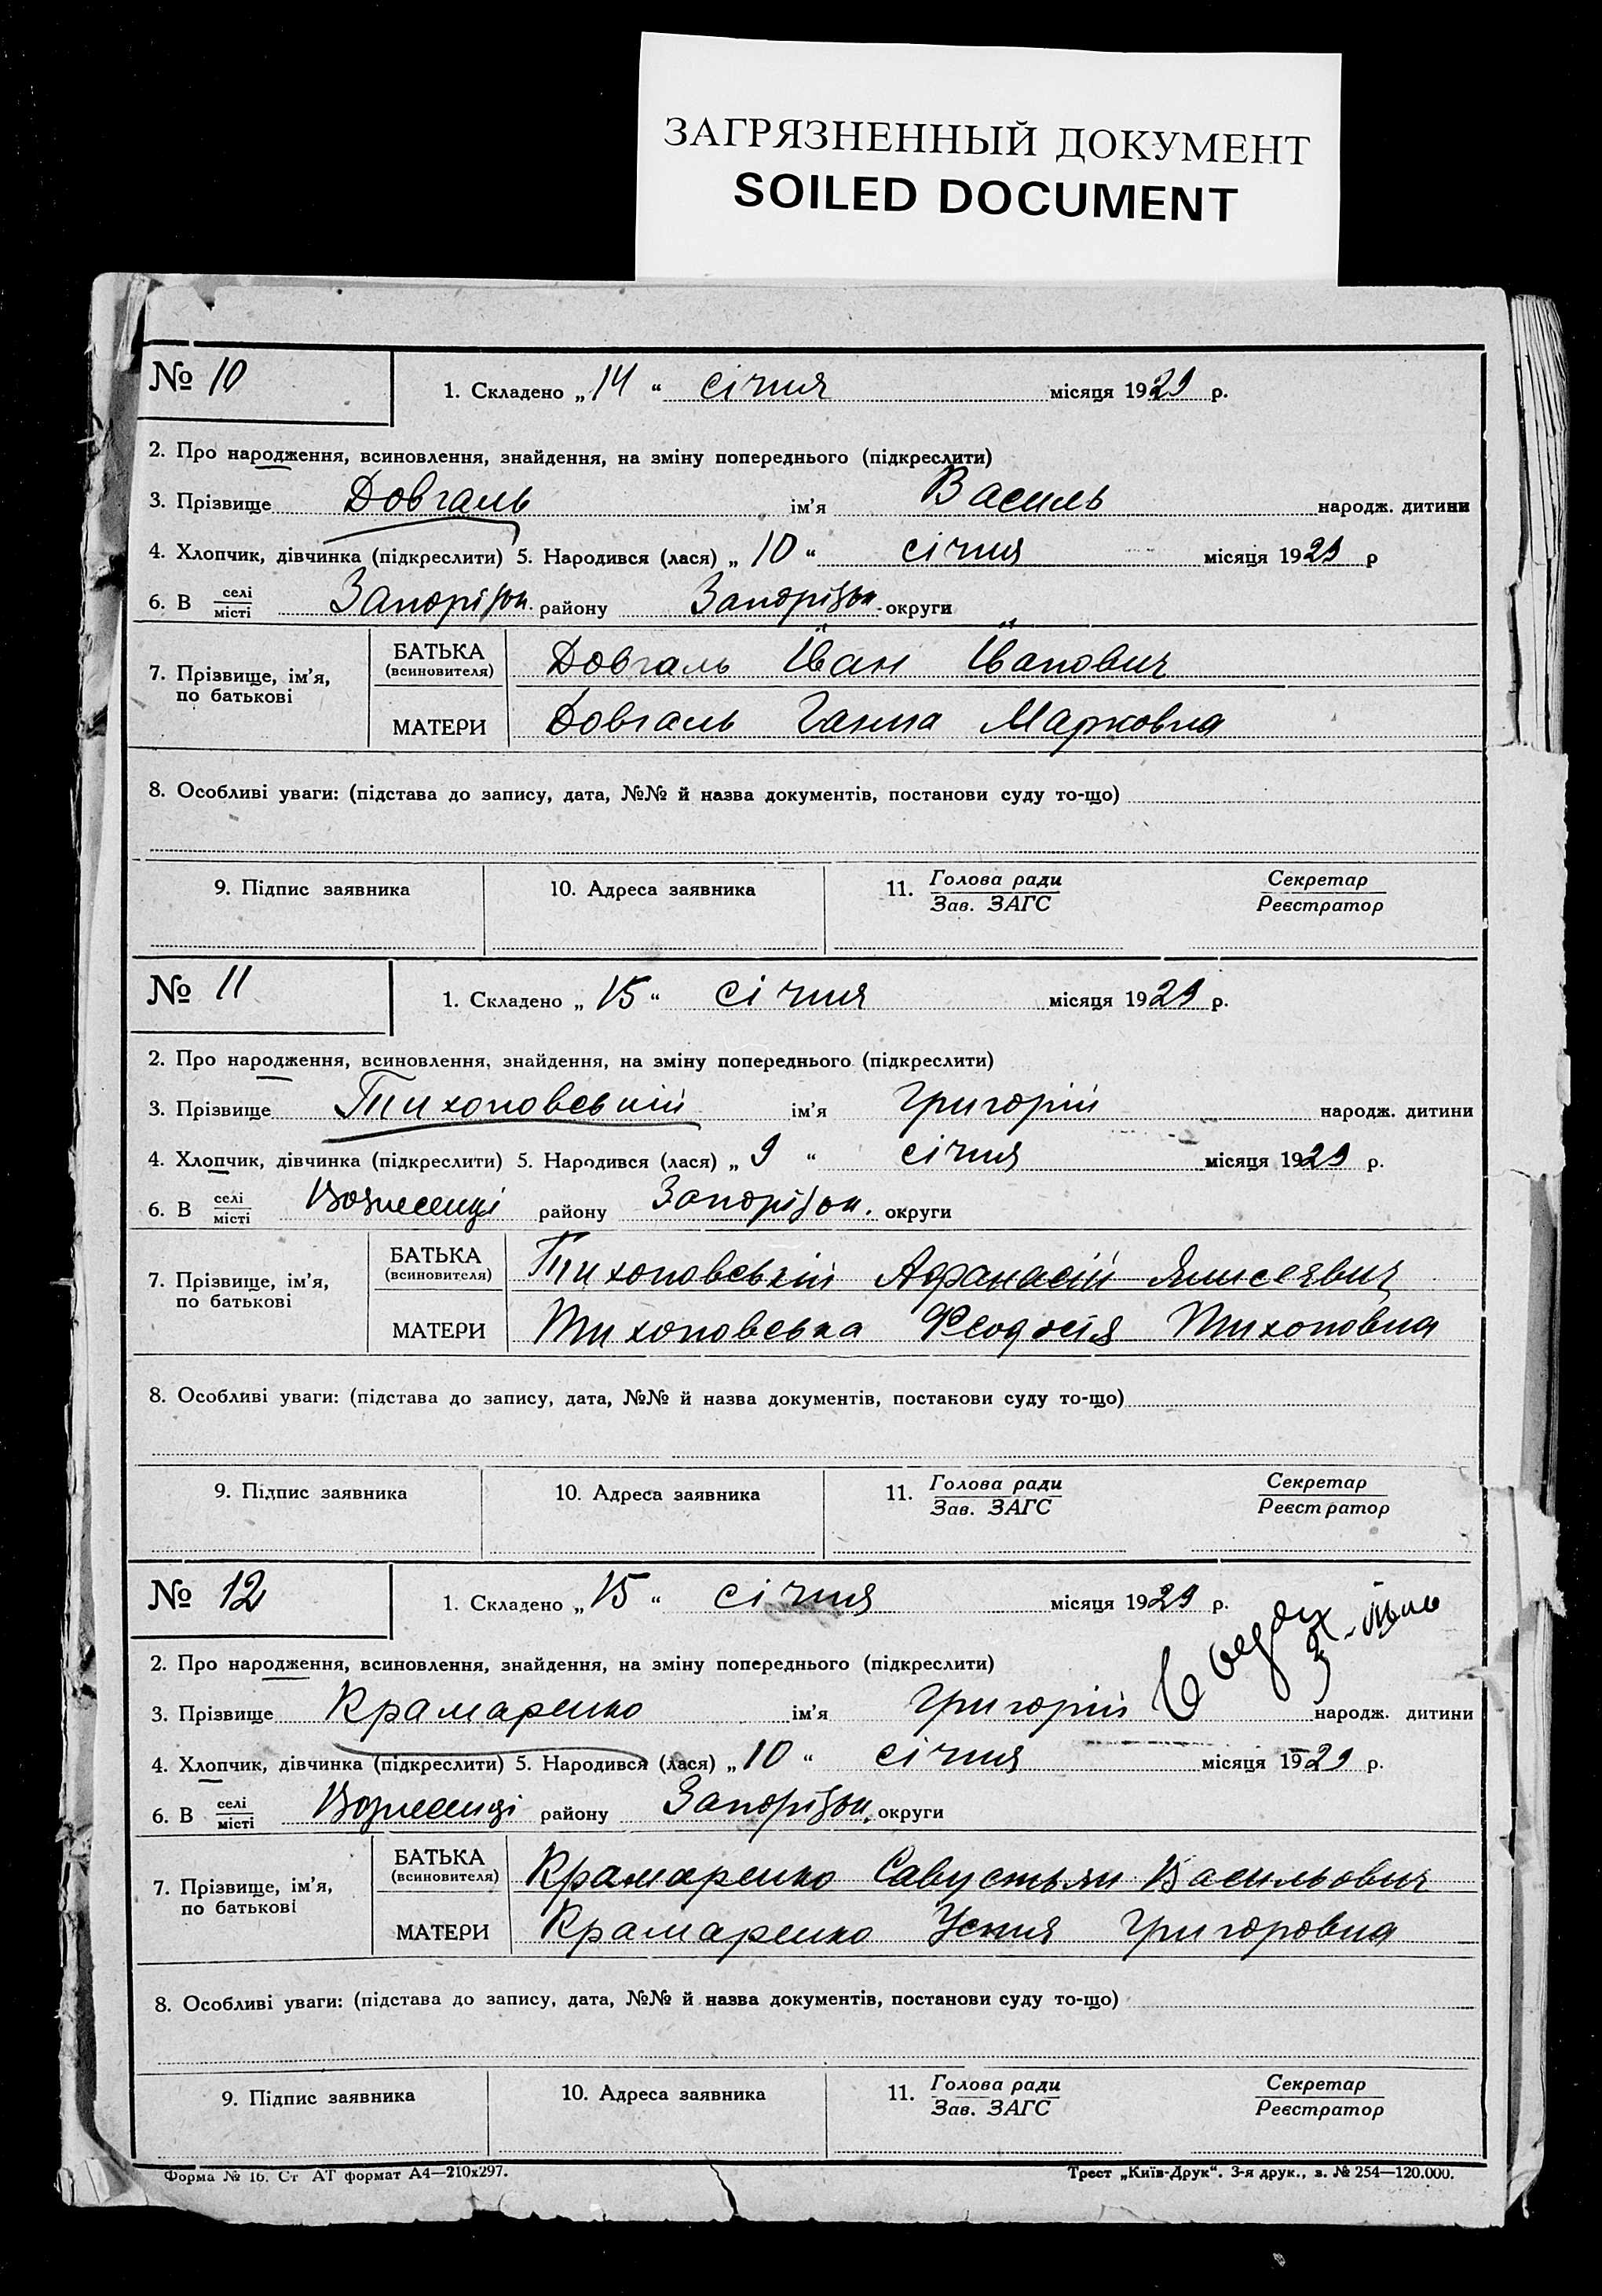 ЗАГРЯЗНЕННЫЙ ДОКУМЕНТ
SOILED DOCUMENT
№ 10
1. Складено „14“ січня місяця 1929 р.
2. Про народження, всиновлення, знайдення, на зміну попереднього (підкреслити)
3. Прізвище Довгаль ім'я Василь народж. дитини
4. Хлопчик, дівчинка (підкреслити) 5. Народився (лася) „10“ січня місяця 1929 р
6. В селі/місті Запорізьк. району Запорізьк. округи
7. Прізвище, ім'я, по батькові
БАТЬКА (всиновителя) Довгаль Іван Іванович
МАТЕРИ Довгаль Ганна Марковна
8. Особливі уваги: (підстава до запису, дата, №№ й назва документів, постанови суду то-що)
9. Підпис заявника 10. Адреса заявника 11. Голова ради/Зав. ЗАГС Секретар/Реєстратор
№ 11
1. Складено „15“ січня місяця 1929 р.
2. Про народження, всиновлення, знайдення, на зміну попереднього (підкреслити)
3. Прізвище Тихоновський ім'я Григорій народж. дитини
4. Хлопчик, дівчинка (підкреслити) 5. Народився (лася) „9“ січня місяця 1929 р.
6. В селі/місті Вознесенці району Запорізьк. округи
7. Прізвище, ім'я, по батькові
БАТЬКА (всиновителя) Тихоновській Афанасій
МАТЕРИ Тихоновська Феодосія Тихоновна
8. Особливі уваги: (підстава до запису, дата, №№ й назва документів, постанови суду то-що)
9. Підпис заявника 10. Адреса заявника 11. Голова ради/Зав. ЗАГС Секретар/Реєстратор
№ 12
1. Складено „15“ січня місяця 1929 р.
2. Про народження, всиновлення, знайдення, на зміну попереднього (підкреслити)
3. Прізвище Крамаренко ім'я Григорій народж. дитини
4. Хлопчик, дівчинка (підкреслити) 5. Народився (лася) „10“ січня місяця 1929 р.
6. В селі/місті Вознесенці району Запорізьк. округи
7. Прізвище, ім'я, по батькові
БАТЬКА (всиновителя) Крамаренко Савустьян Васильович
МАТЕРИ Крамаренко Усеня Григоровна
8. Особливі уваги: (підстава до запису, дата, №№ й назва документів, постанови суду то-що)
9. Підпис заявника 10. Адреса заявника 11. Голова ради/Зав. ЗАГС Секретар/Реєстратор
Форма № 16. Ст АТ формат А4—210х297.
Трест „Київ-Друк“. 3-я друк., з. № 254—120.000.